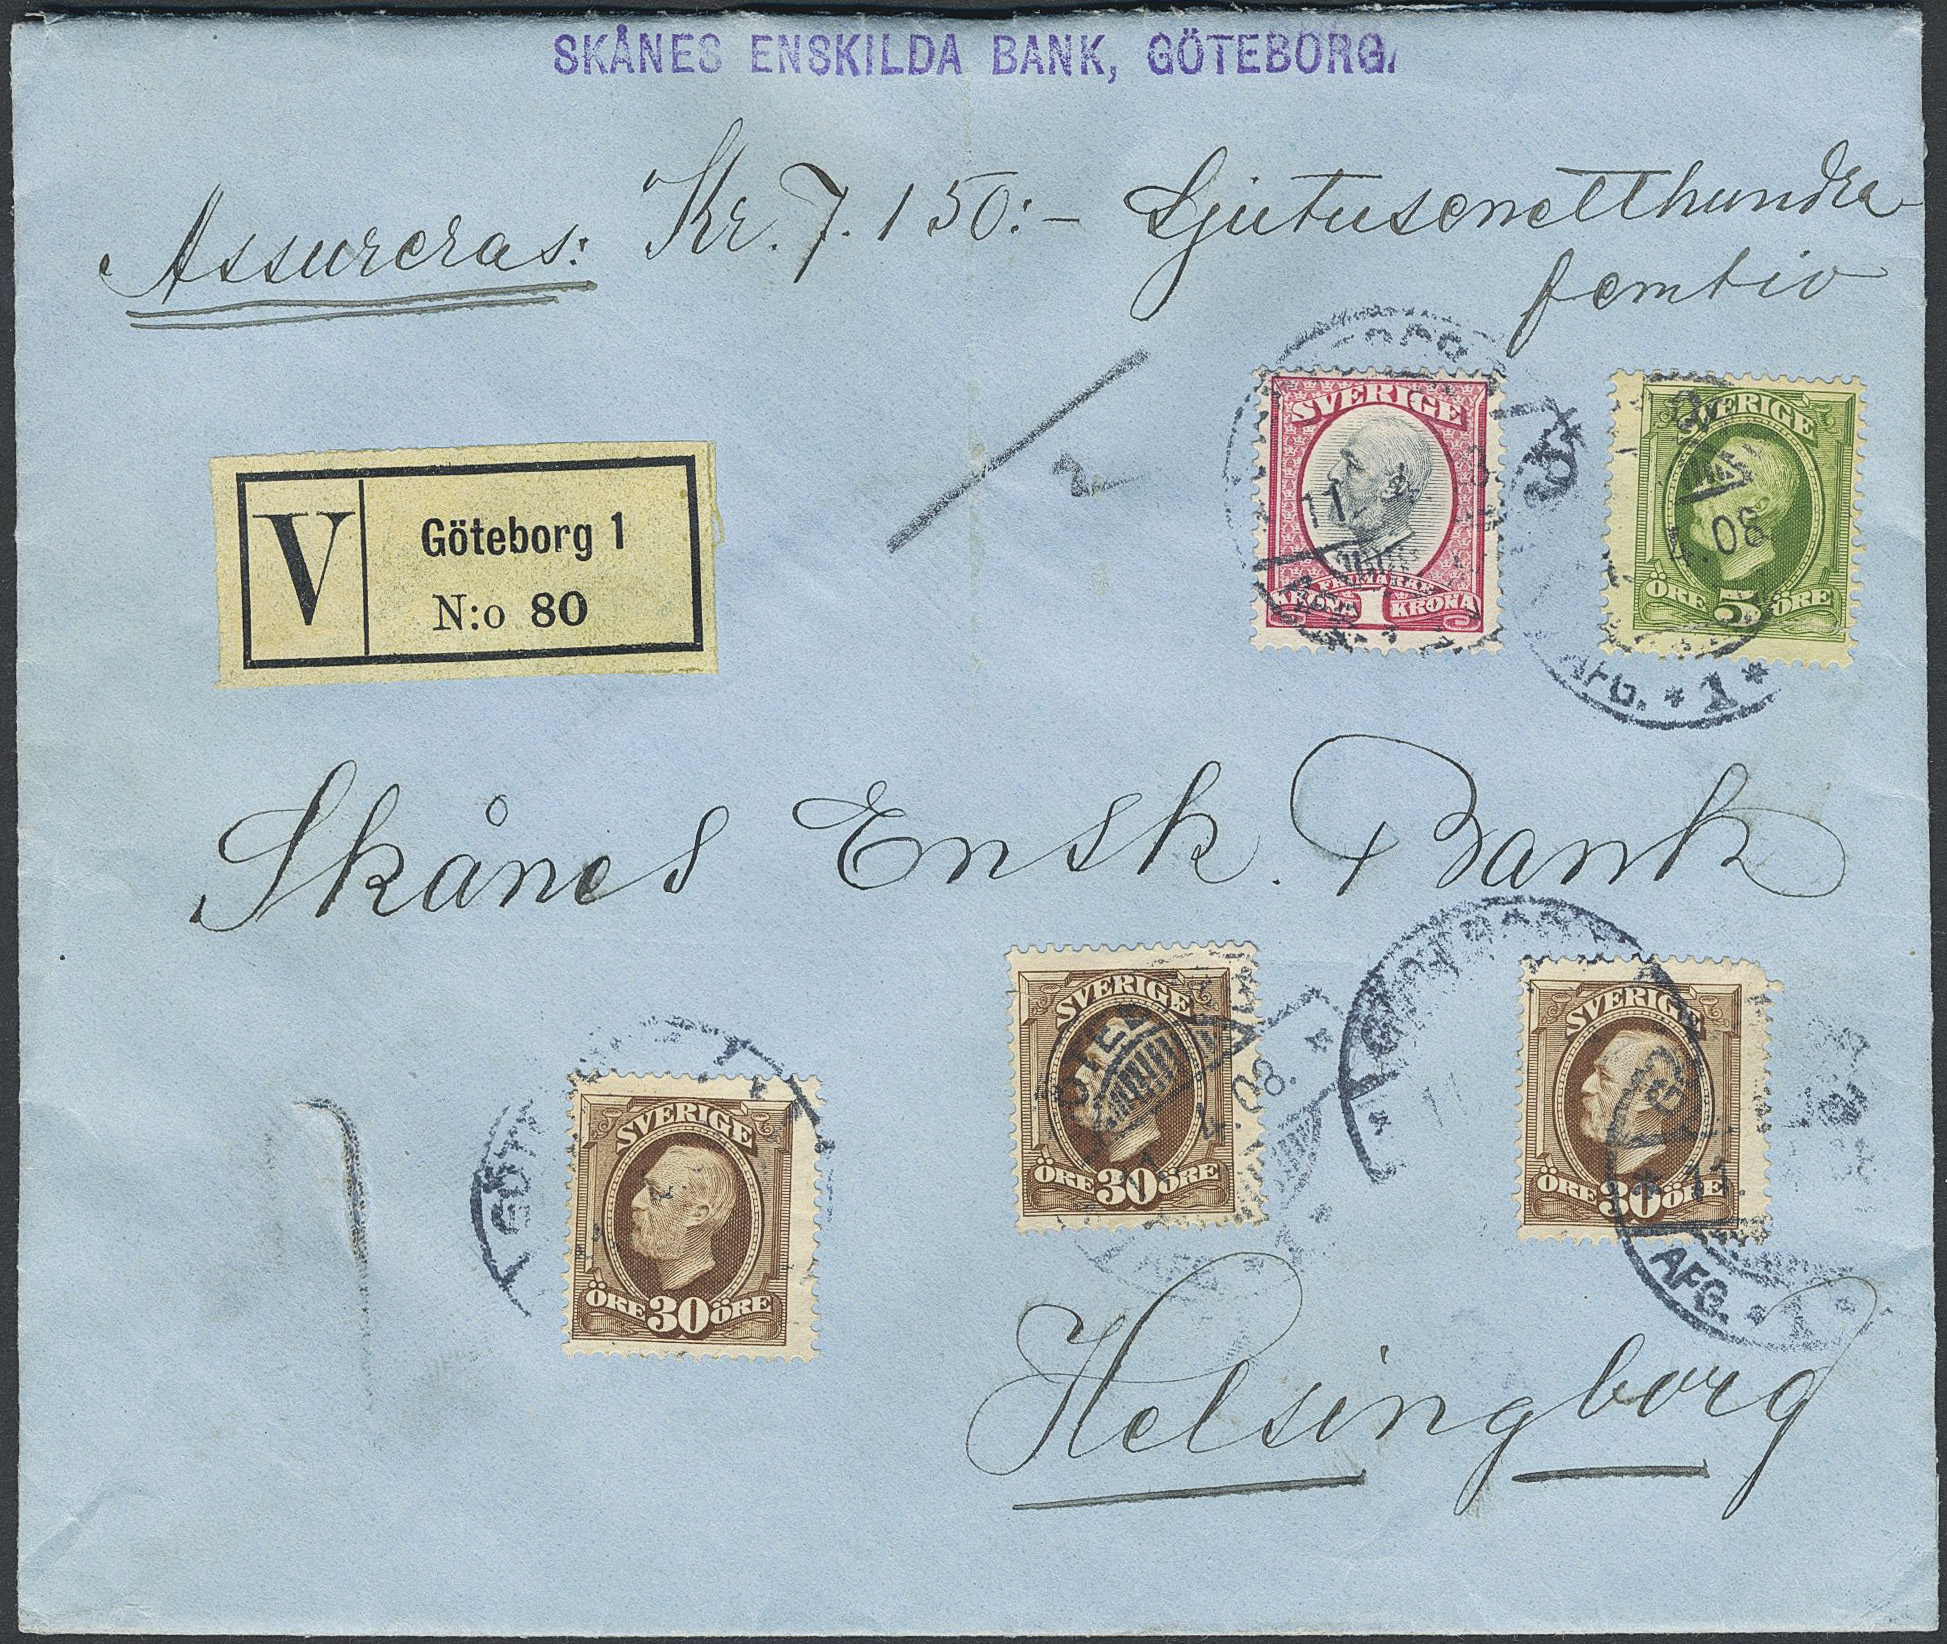 SKÅNES ENSKILDA BANK, GÖTEBORG.
Assureras: Kr. 7.150:- Sjutusenetthundra
femtio
V
Göteborg 1
N:o 80
2
SVERIGE
FRIMÄRKE
KRONA 1 KRONA
11
SVERIGE
ÖRE 5 ÖRE
08
AFG. * 1 *
Skånes Ensk. Bank
SVERIGE
ÖRE 30 ÖRE
GÖT
SVERIGE
ÖRE 30 ÖRE
GÖTE
4. 08.
SVERIGE
ÖRE 30 ÖRE
11.
AFG. * 1
Helsingborg